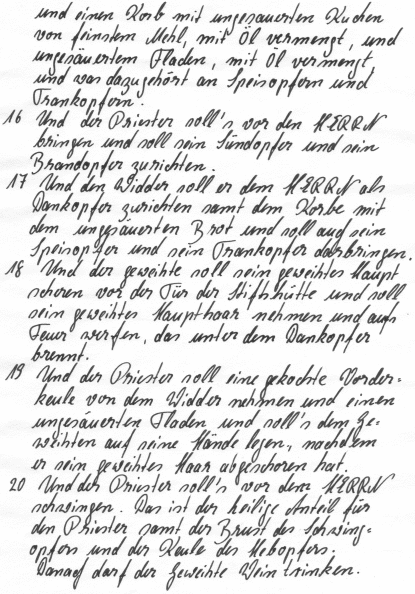 und einen Korb mit ungesäuerten Kuchen
von feinstem Mehl, mit Öl vermengt, und
ungesäuertem Fladen, mit Öl vermengt
und was dazugehört an Speisopfern und
Trankopfern.
16 Und der Priester soll's vor den HERRN
bringen und soll sein Sündopfer und sein
Brandopfer zurichten.
17 Und den Widder soll er dem HERRN als
Dankopfer zurichten samt dem Korbe mit
dem ungesäuerten Brot und soll auch sein
Speisopfer und sein Trankopfer darbringen.
18 Und der geweihte soll sein geweihtes Haupt
scheren vor der Tür der Stiftshütte und soll
sein geweihtes Haupthaar nehmen und aufs
Feuer werfen, das unter dem Dankopfer
brennt.
19 Und der Priester soll eine gekochte Vorder-
keule von dem Widder nehmen und einen
ungesäuerten Fladen und soll's dem Ge-
weihten auf seine Hände legen, nachdem
er sein geweihtes Haar abgeschoren hat.
20 Und der Priester soll's vor dem HERRN
schwingen. Das ist der heilige Anteil für
den Priester samt der Brust des Schwing-
opfers und der Keule des Hebopfers.
Danach darf der Geweihte Wein trinken.